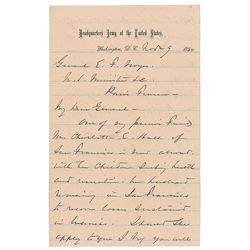 Headquarters Army of the United States,
Washington, D.C. Nov. 9, 188
General E. F. Noyes
U.S. Minister &c
Paris France
My Dear General
One of my Army friends
Mrs Charlotte E. Hall of
San Francisco is now abroad
with the Children seeking health
and recreation, her husband
remaining in San Francisco
to recover losses sustained
in business. Should she
apply to you I beg you will